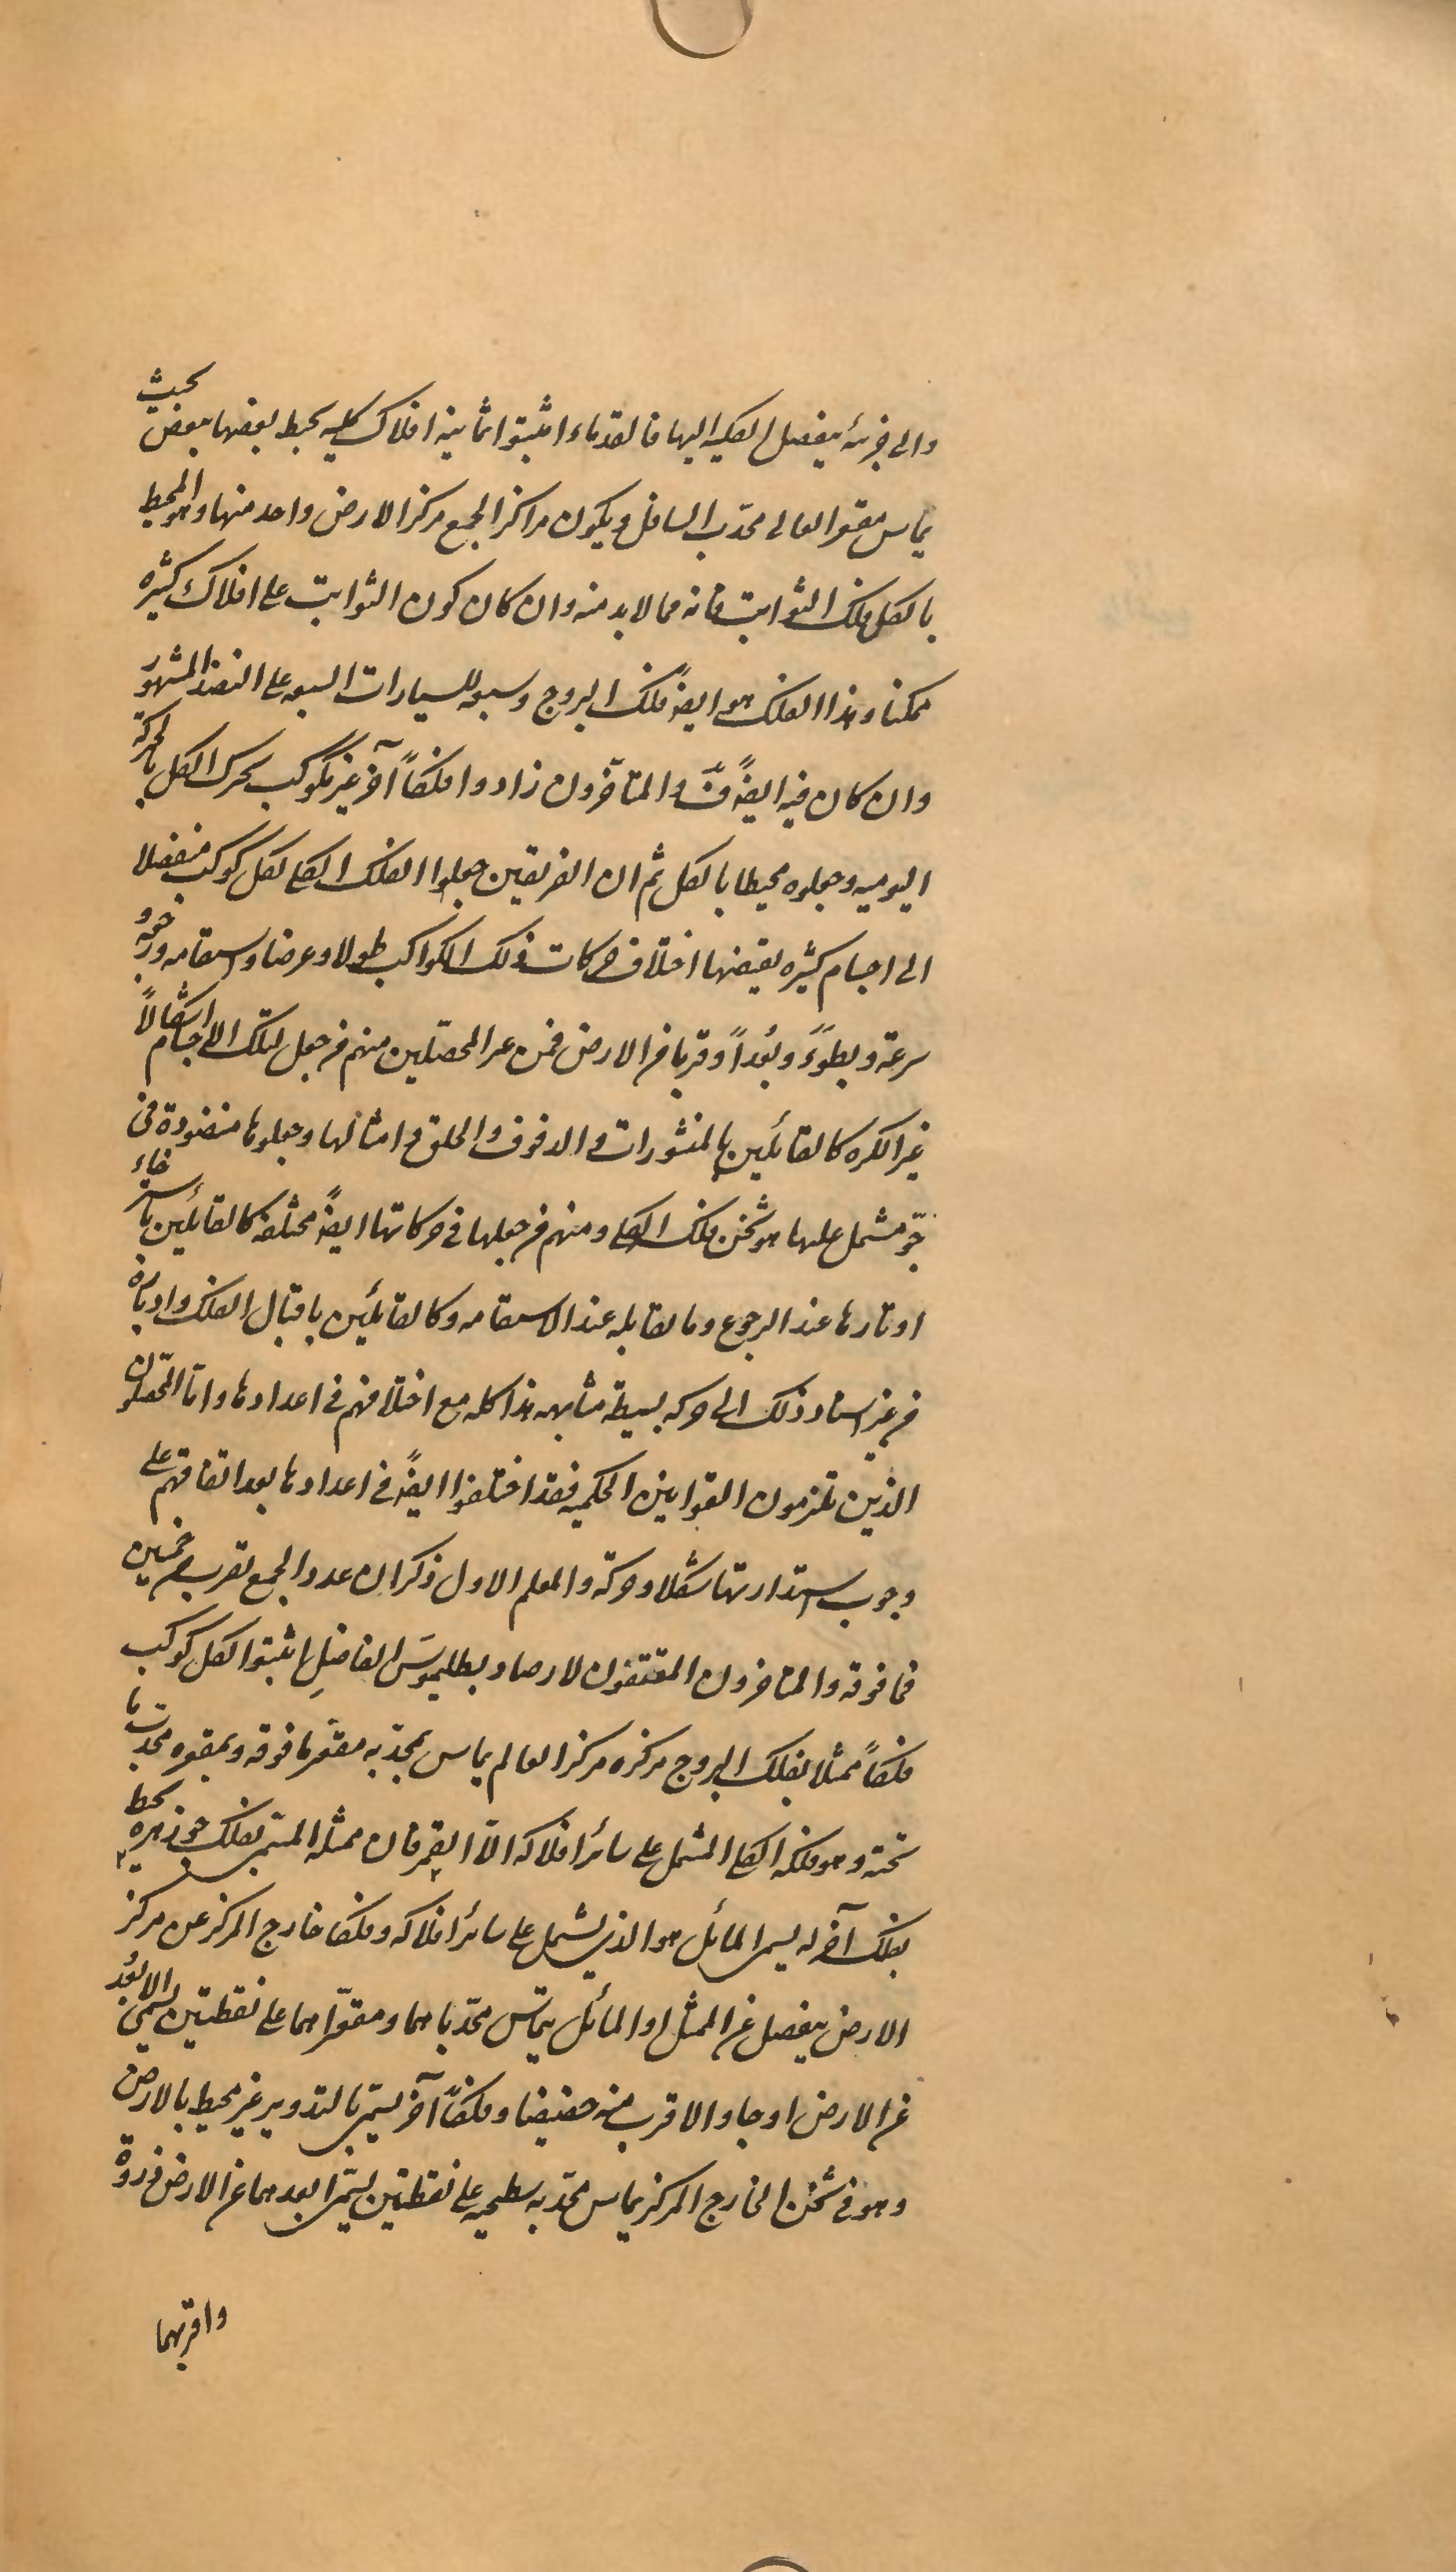 والى جزئية ينفصل الكلية اليها فالقدماء اثبتوا ثمانية افلاك كلية يحيط بعضها ببعض بحيث
يماس مقعر العالى محدب السافل ويكون مراكز الجميع مركز الارض واحد منها وهو المحيط
بالكل فلك الثوابت فانه مما لابد منه وان كان كون الثوابت على افلاك كثيره
ممكنا وهذا الفلك هو ايضاً فلك البروج وسبعه للسيارات السبعه على النضد المشهور
وان كان فيه ايضاً والمتأخرون زادوا فلكاً آخر غير مكوكب يحرك الكل بالحركة
اليوميه وجعلوه محيطا بالكل ثم ان الفريقين جعلوا الفلك الكلى لكل كوكب منفصلا
الى اجسام كثيره يقتضيها اختلاف حركات ذلك الكواكب طولا وعرضا واستقامه ورجعة و
سرعة وبطوءً وبُعداً وقربا من الارض فمن غير المحصّلين منهم من جعل لتلك الاجسام اشكالاً
غير الكره كالقائلين بالمنشورات والدفوف والحلق وامثالها وجعلوها منضودة فى
جوّ مشتمل عليها هو ثخن فلك الكلى ومنهم من جعلها فى حركاتها ايضاً مختلفه كالقائلين باسترخاء
اوتارها عند الرجوع وما يقابله عند الاستقامه وكالقائلين باقبال الفلك وادباره
من غير استناد ذلك الى حركه بسيطة متشابهه هذا كله مع اختلافهم فى اعدادها واما المحصّلون
الذين يلتزمون القوانين الحكميه فقد اختلفوا ايضاً فى اعدادها بعد اتفاقهم على
وجوب استدارتها شكلا وحركة والمعلم الاول ذكر ان عدد الجميع يقرب من خمسين
فما فوقه والمتاخرون المقتفون لارصاد بطليموسَ الفاضلِ اثبتوا لكل كوكب
فلكاً ممثلا بفلك البروج مركزه مركز العالم يماس بمحدّبه مقعّر ما فوقه وبمقعره محدّب ما
تحته وهو فلكه الكلى المشتمل على سائر افلاكه الاّ القمر فان ممثله المسمّى بفلك جوزهره يحيط
بفلك آخر له يسمى المائل هو الذى يشتمل على سائر افلاكه وفلكا خارج المركز عن مركز
الارض ينفصل عن الممثل او المائل يتماسّ محدّباهما ومقعّراهما على نقطتين يسمى الابعُد
عن الارض اوجا والاقرب منه حضيضا وفلكاً آخر يسمّى بالتدوير غير محيط بالارض
وهو فى ثخن الخارج المركز يماس محدّبه سطحيه على نقطتين يسمّى ابعدهما عن الارض ذروة
واقربهما